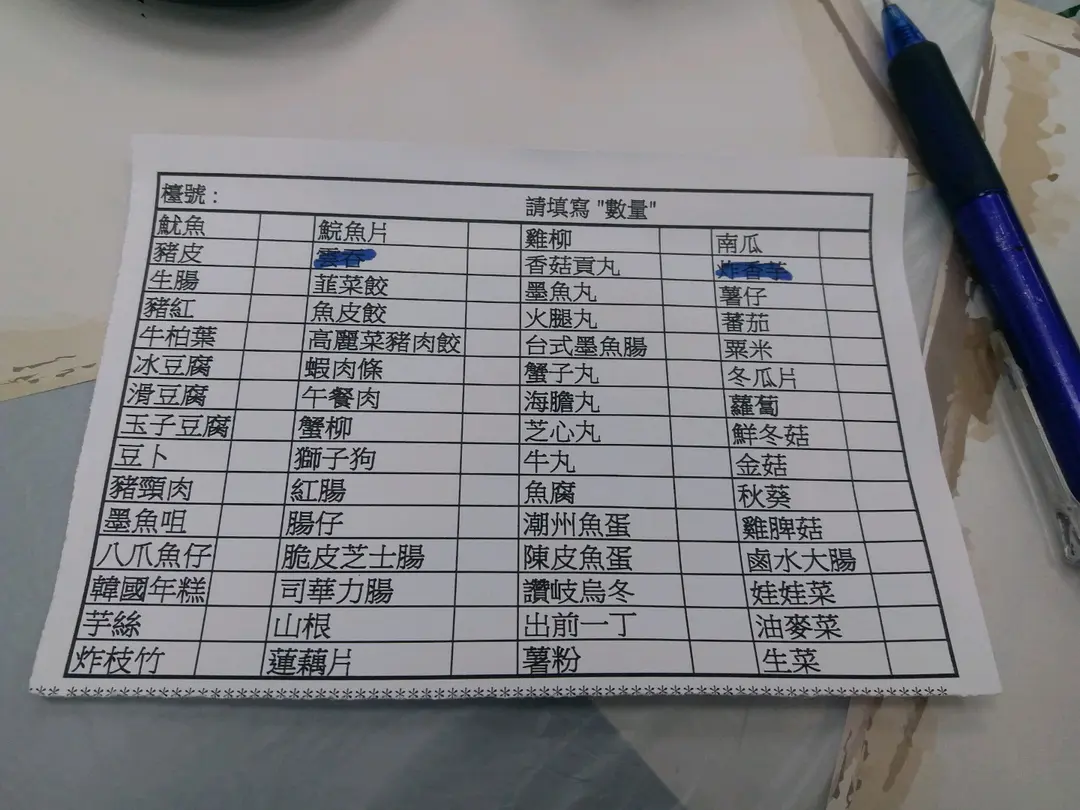 檯號： 請填寫 "數量"
魷魚 鯇魚片 雞柳 南瓜
豬皮 雲吞 香菇貢丸 炸香芋
生腸 韮菜餃 墨魚丸 薯仔
豬紅 魚皮餃 火腿丸 蕃茄
牛柏葉 高麗菜豬肉餃 台式墨魚腸 粟米
冰豆腐 蝦肉條 蟹子丸 冬瓜片
滑豆腐 午餐肉 海膽丸 蘿蔔
玉子豆腐 蟹柳 芝心丸 鮮冬菇
豆卜 獅子狗 牛丸 金菇
豬頸肉 紅腸 魚腐 秋葵
墨魚咀 腸仔 潮州魚蛋 雞脾菇
八爪魚仔 脆皮芝士腸 陳皮魚蛋 鹵水大腸
韓國年糕 司華力腸 讚岐烏冬 娃娃菜
芋絲 山根 出前一丁 油麥菜
炸枝竹 蓮藕片 薯粉 生菜